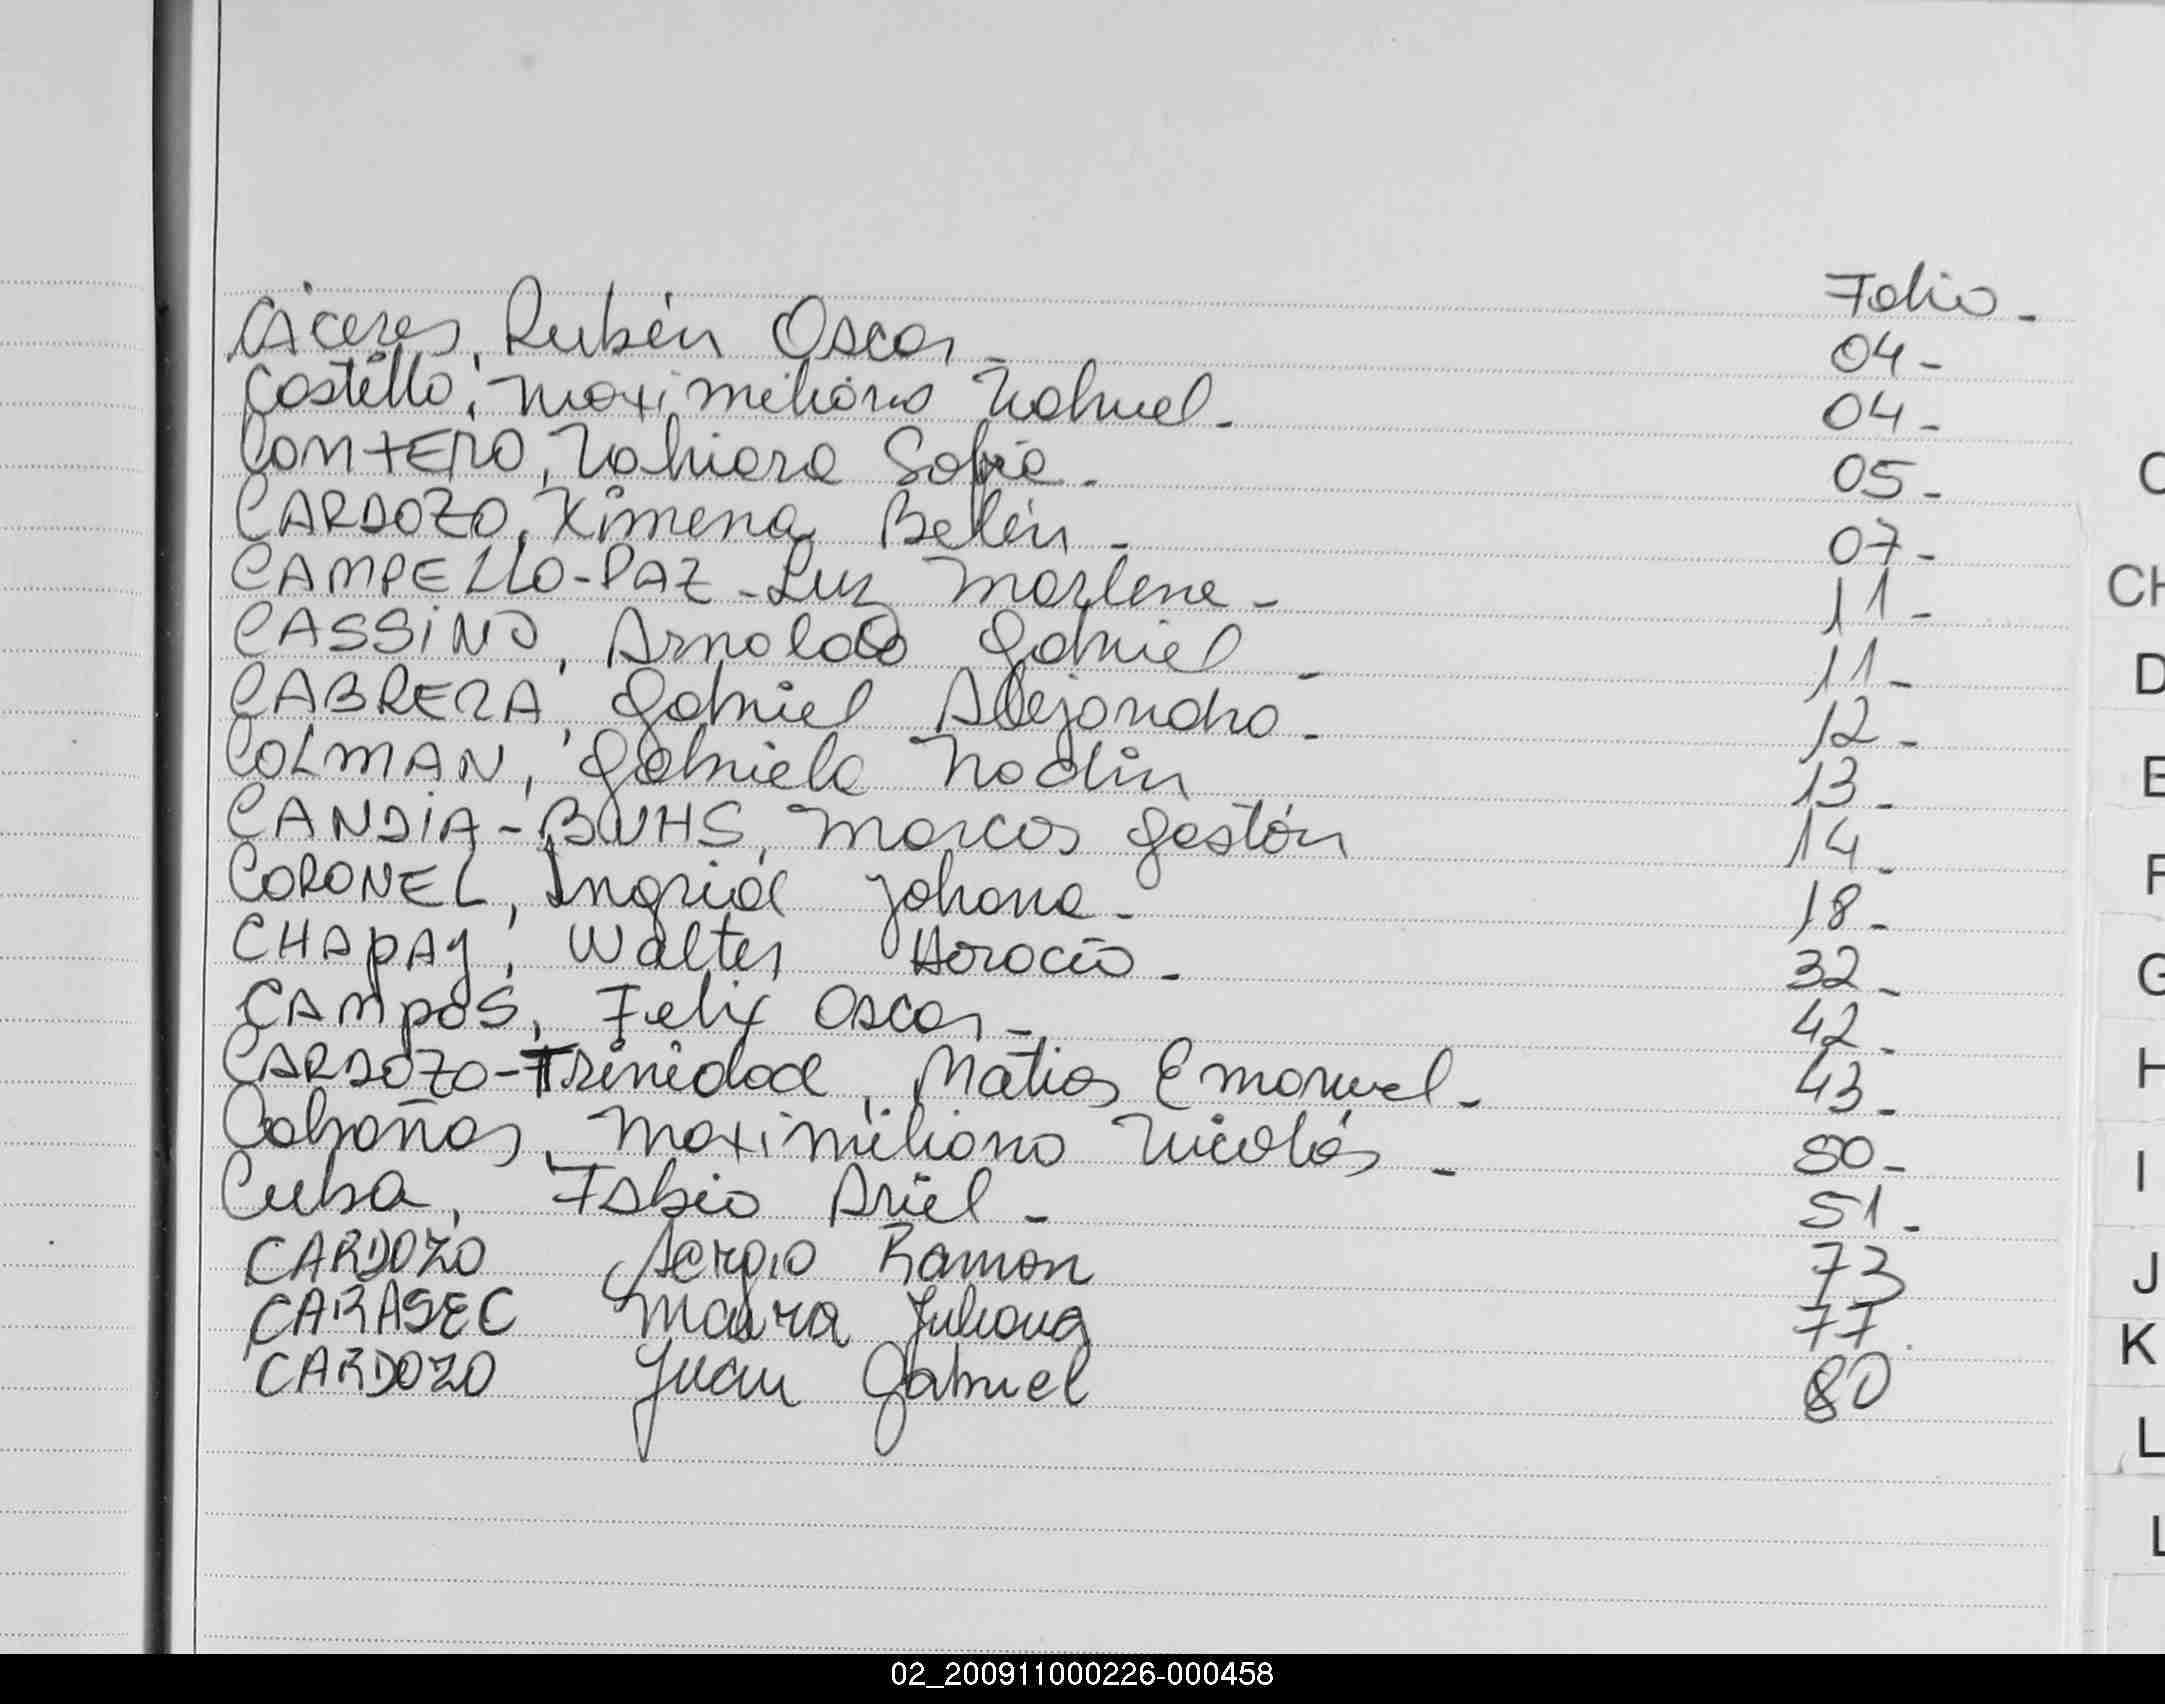 Folio -
Cáceres, Rubén Oscar - 04 -
Castillo, Maximiliano Nahuel - 04 -
CONTERO, Nahiara Sofía - 05 -
CARDOZO, Ximena Belén - 07 -
CAMPELLO - PAZ - Luz Marlene - 11 -
CASSINO, Arnoldo Gabriel - 11 -
CABRERA, Gabriel Alejandro - 12 -
COLMAN, Gabriela Nadin 13 -
CANDIA - Marcos Gastón 14 -
CORONEL, Ingrid Johana - 18 -
CHApAy, Walter Horacio - 32 -
CAMpOS, Felix Oscar - 42 -
CARDOZO - Trinidad, Matias Emanuel - 43 -
Cabañas, Maximiliano Nicolás - 50 -
Cuba, Fabio Ariel - 51 -
CARDOZO Sergio Ramon 73
CARASEC Maira Juliana 77.
CARDOZO Juan Gabriel 80
C
CH
D
E
F
G
H
I
J
K
L
L
02_200911000226-000458